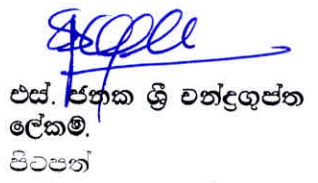 එස්. ජනක ශ්‍රී චන්ද්‍රගුප්ත
ලේකම්.
පිටපත්